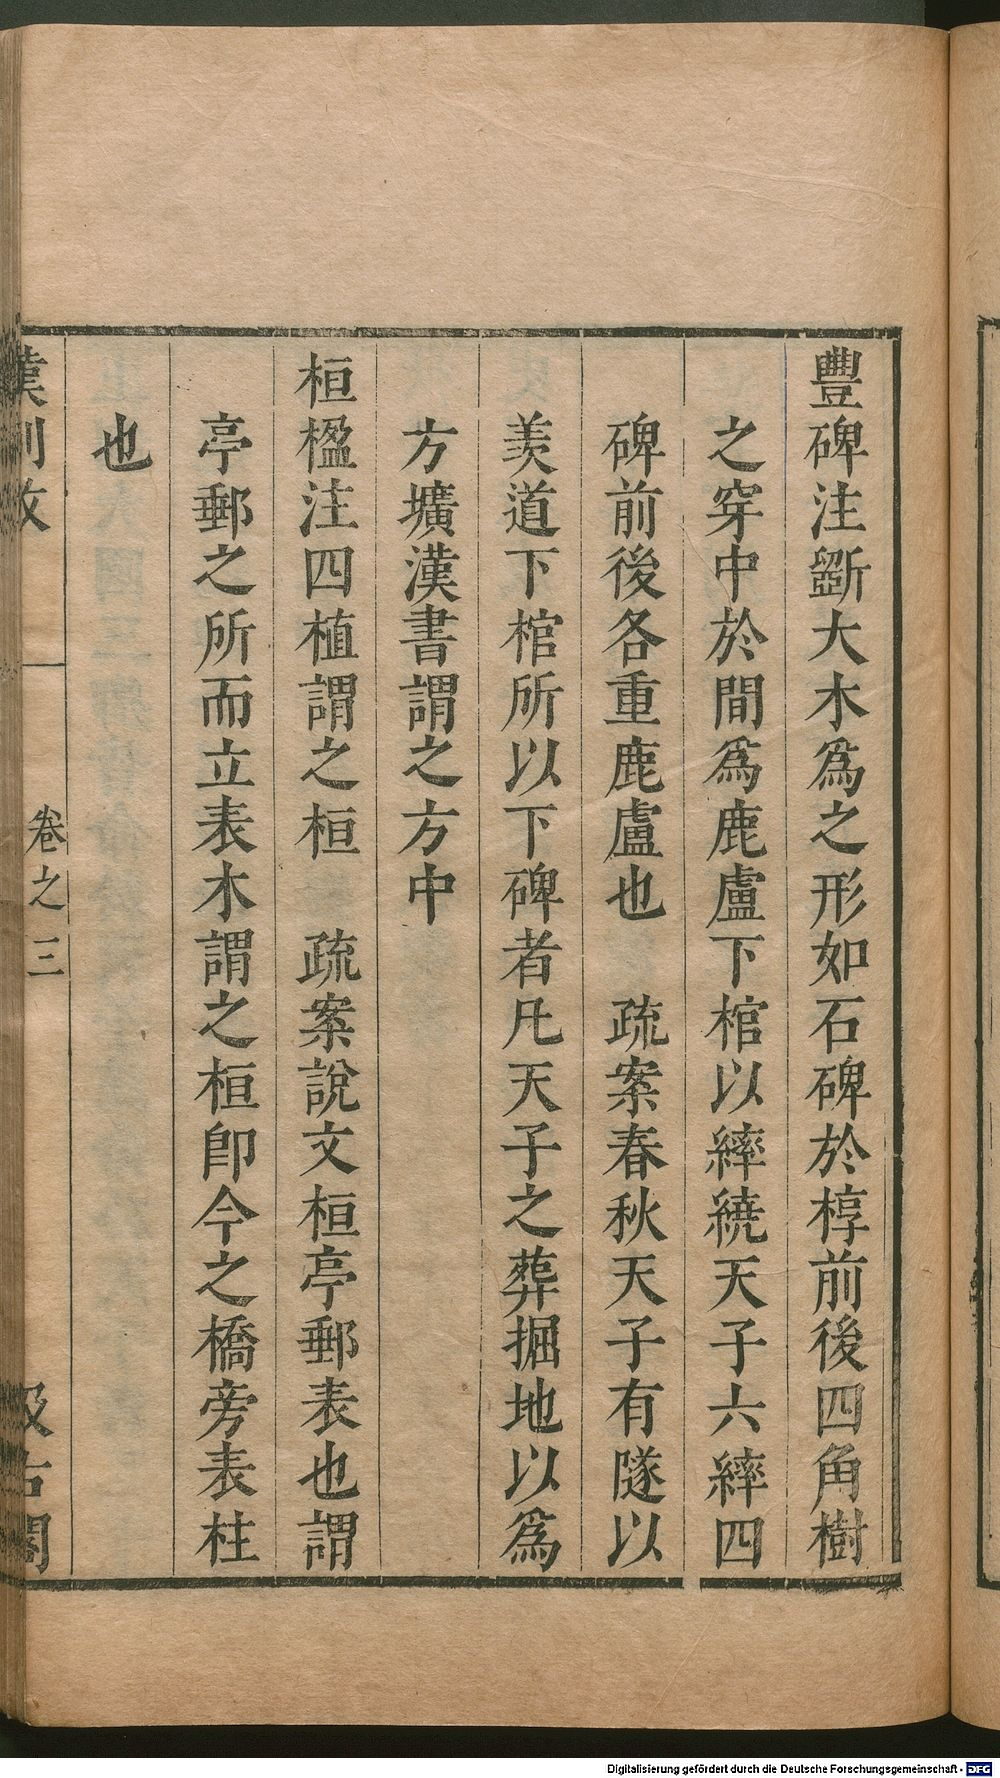 豐碑注斵大木爲之形如石碑於椁前後四角樹
之穿中於間爲鹿盧下棺以繂繞天子六繂四
碑前後各重鹿盧也　疏案春秋天子有隧以
羨道下棺所以下碑者凡天子之葬掘地以爲
方壙漢書謂之方中
桓楹注四植謂之桓　疏案說文桓亭郵表也謂
亭郵之所而立表木謂之桓卽今之橋旁表柱
也
漢制攷　卷之三　汲古閣
Digitalisierung gefördert durch die Deutsche Forschungsgemeinschaft - DFG